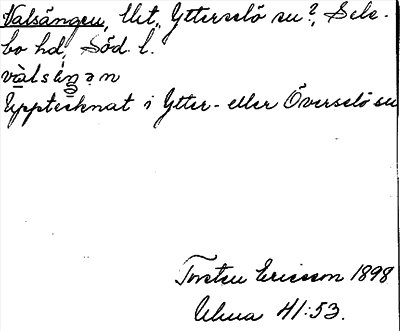 Valsängen, Ut., Ytterselö sn?, Sele-
bo hd, Söd. l.
và̱lsèŋ̱ən
Upptecknat i Ytter- eller Överselö sn
Torsten Ericsson 1898
Ulma 41:53.